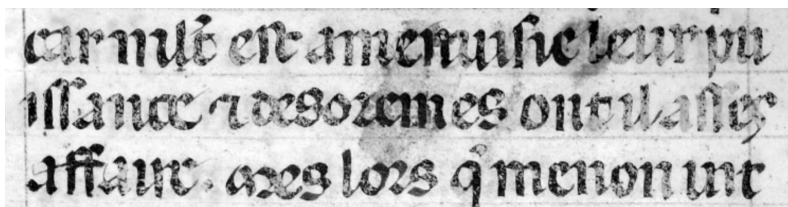 car mlt̃ est amenuisie leur pu
issance ⁊ desoremes ont il asses
affaire. mes lors q̃ menon uit